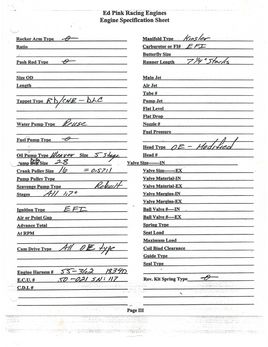 Ed Pink Racing Engines
Engine Specification Sheet
Rocker Arm Type
Ratio
Push Rod Type
Size OD
Length
Tappet Type
Water Pump Type
Fuel Pump Type
Oil Pump Type Weaver Size 5 stage
28
Crank Pulley Size 16 =
Pump Pulley Type
Scavenge Pump Type
Stages All
Ignition Type EFI
Air or Point Gap
Advance Total
At RPM
Cam Drive Type All OE type
Engine Harness # 55-362
E.C.U. # 50-021 SN: 117
C.D.I. #
Manifold Type Kinsler
Carburetor or FI# EFI
Butterfly Size
Runner Length 7 1/4" Stacks
Main Jet
Air Jet
Tube #
Pump Jet
Flat Level
Flat Drop
Nozzle #
Fuel Pressure
Head Type OE - Modified
Head #
Valve Size---IN
Valve Size---EX
Valve Material-IN
Valve Material-EX
Valve Margin-IN
Valve Margin-EX
Ball Valve #---IN
Ball Valve #---EX
Spring Type
Seat Load
Maximum Load
Coil Bind Clearance
Guide Type
Seat Type
Rev. Kit Spring Type
Page III